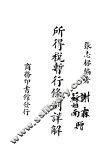 張志樑編著
謝霖
蘇祖南 校
所得稅暫行條例詳解
商務印書館發行